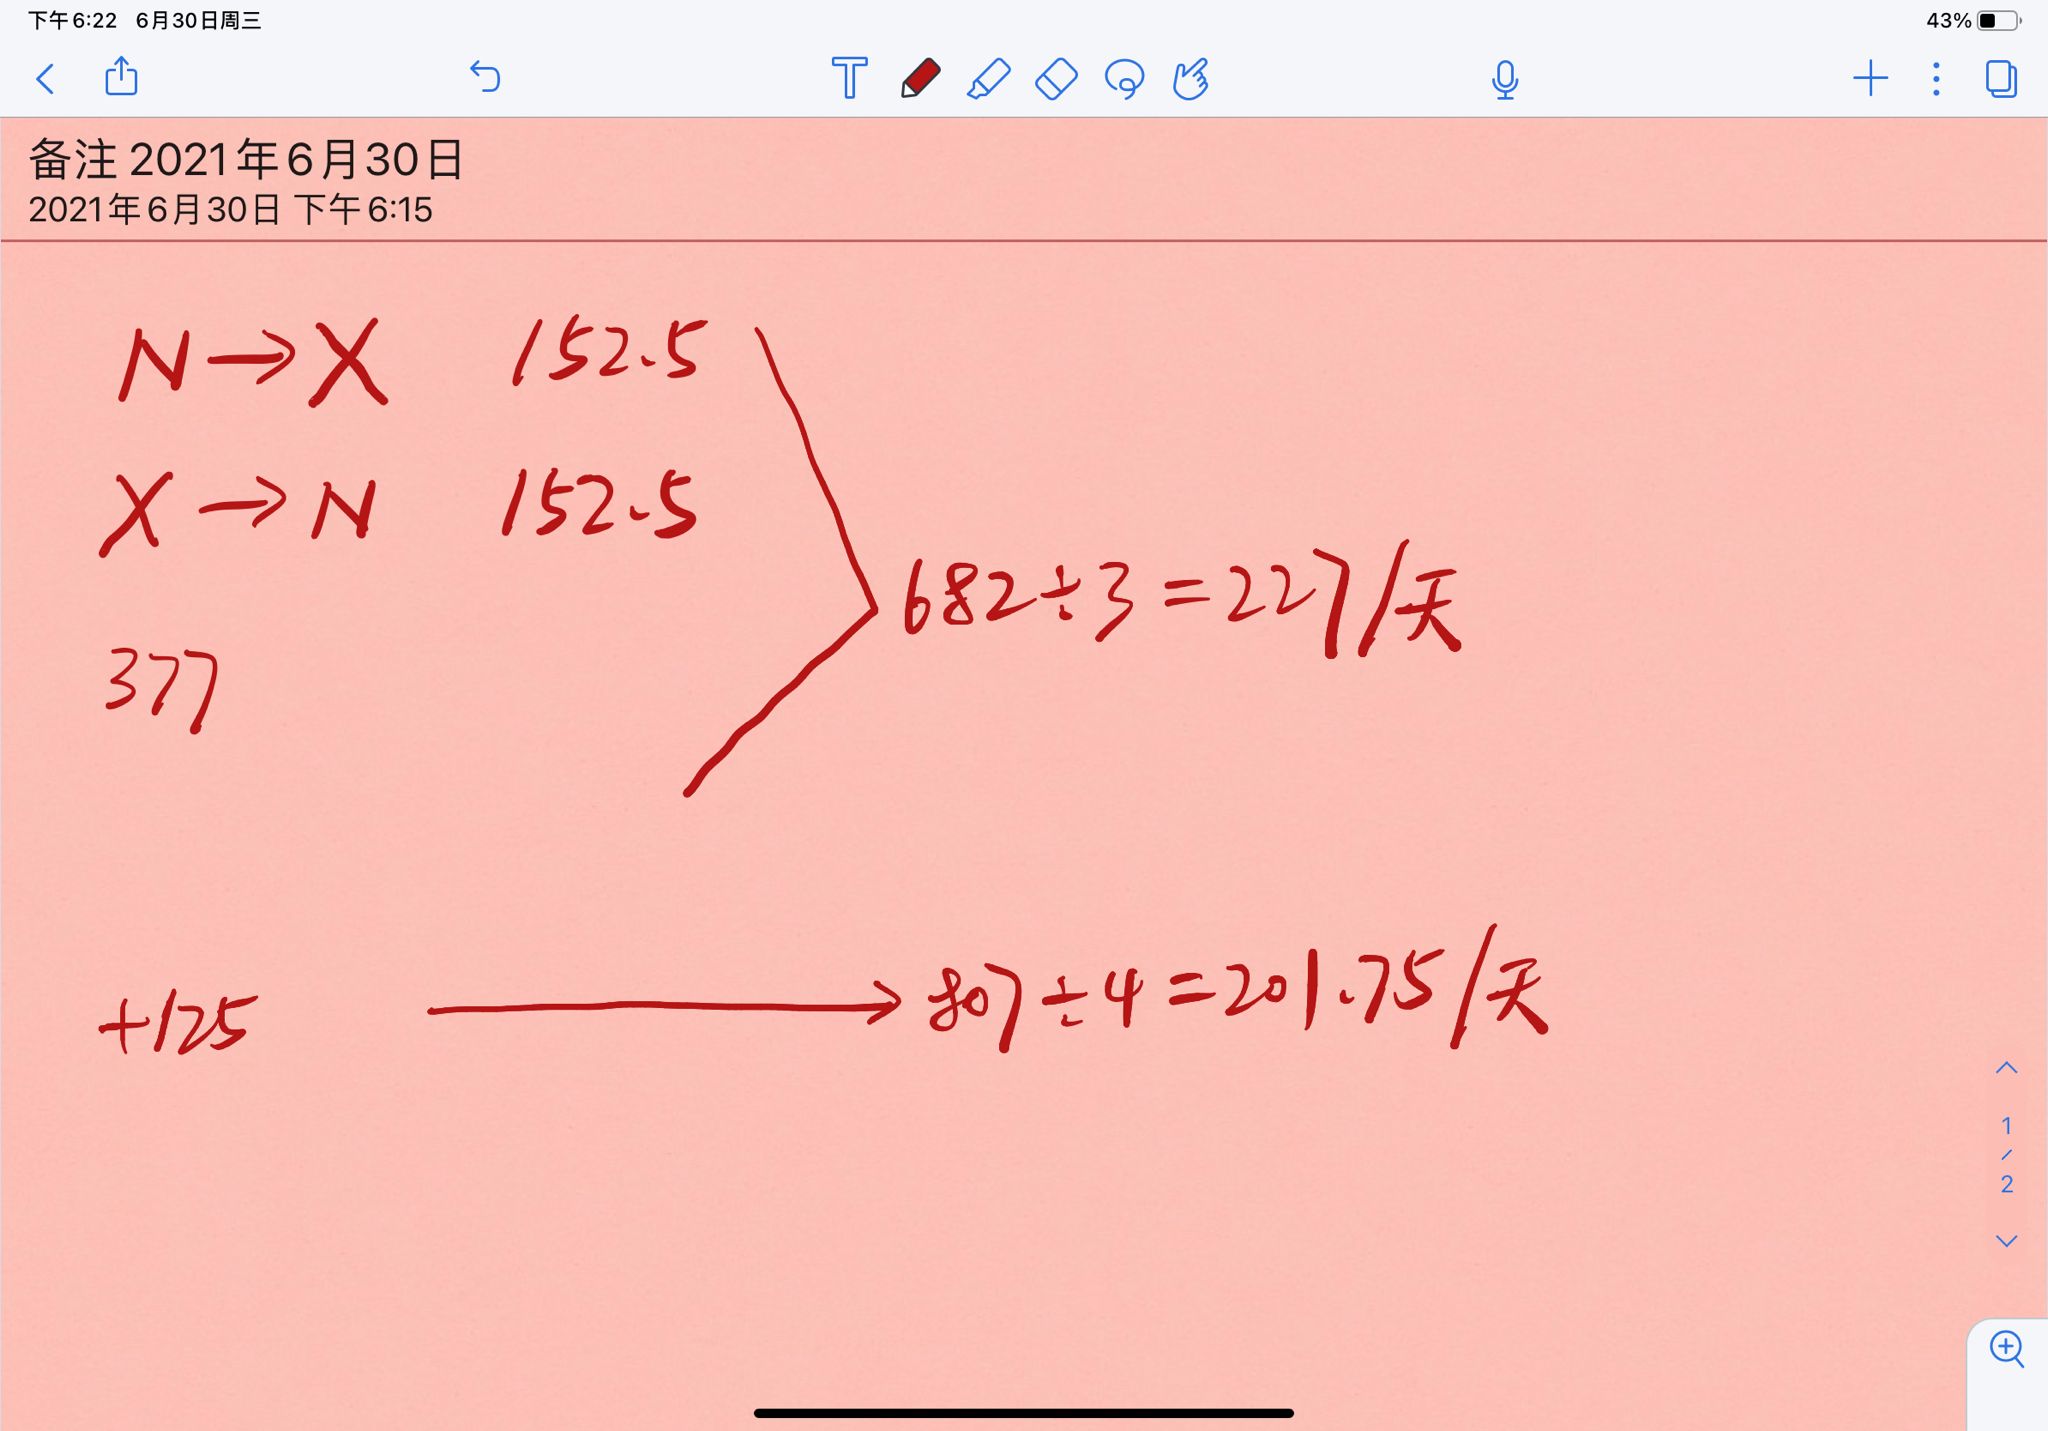 下午6:22 6月30日周三
43%
备注 2021年6月30日
2021年6月30日 下午6:15
N→X 152.5
X→N 152.5
682÷3=227/天
377
+125 → 807÷4=201.75/天
1
/
2